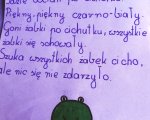 Piękny, piękny czarno-biały.
Goni żabki po cichutku, wszystkie
żabki się schowały.
Szuka wszystkich żabek cicho,
ale nic się nie zdarzyło.